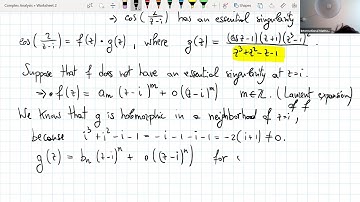 Complex Analysis - Worksheet 2
→ cos(2/(z-i)) has an essential singularity
cos(2/(z-i)) = f(z) · g(z), where g(z) = (cos z - 1)(z+1)(z²-1)² / (z³+z²-z-1)
Suppose that f does not have an essential singularity at z=i.
→ f(z) = a_m (z-i)^m + o((z-i)^m) m∈ℤ. (Laurent expansion
of f)
We know that g is holomorphic in a neighborhood of z=i,
because i³+i²-i-1 = -i-1-i-1 = -2(i+1) ≠ 0.
g(z) = b_n (z-i)^n + o((z-i)^n) for